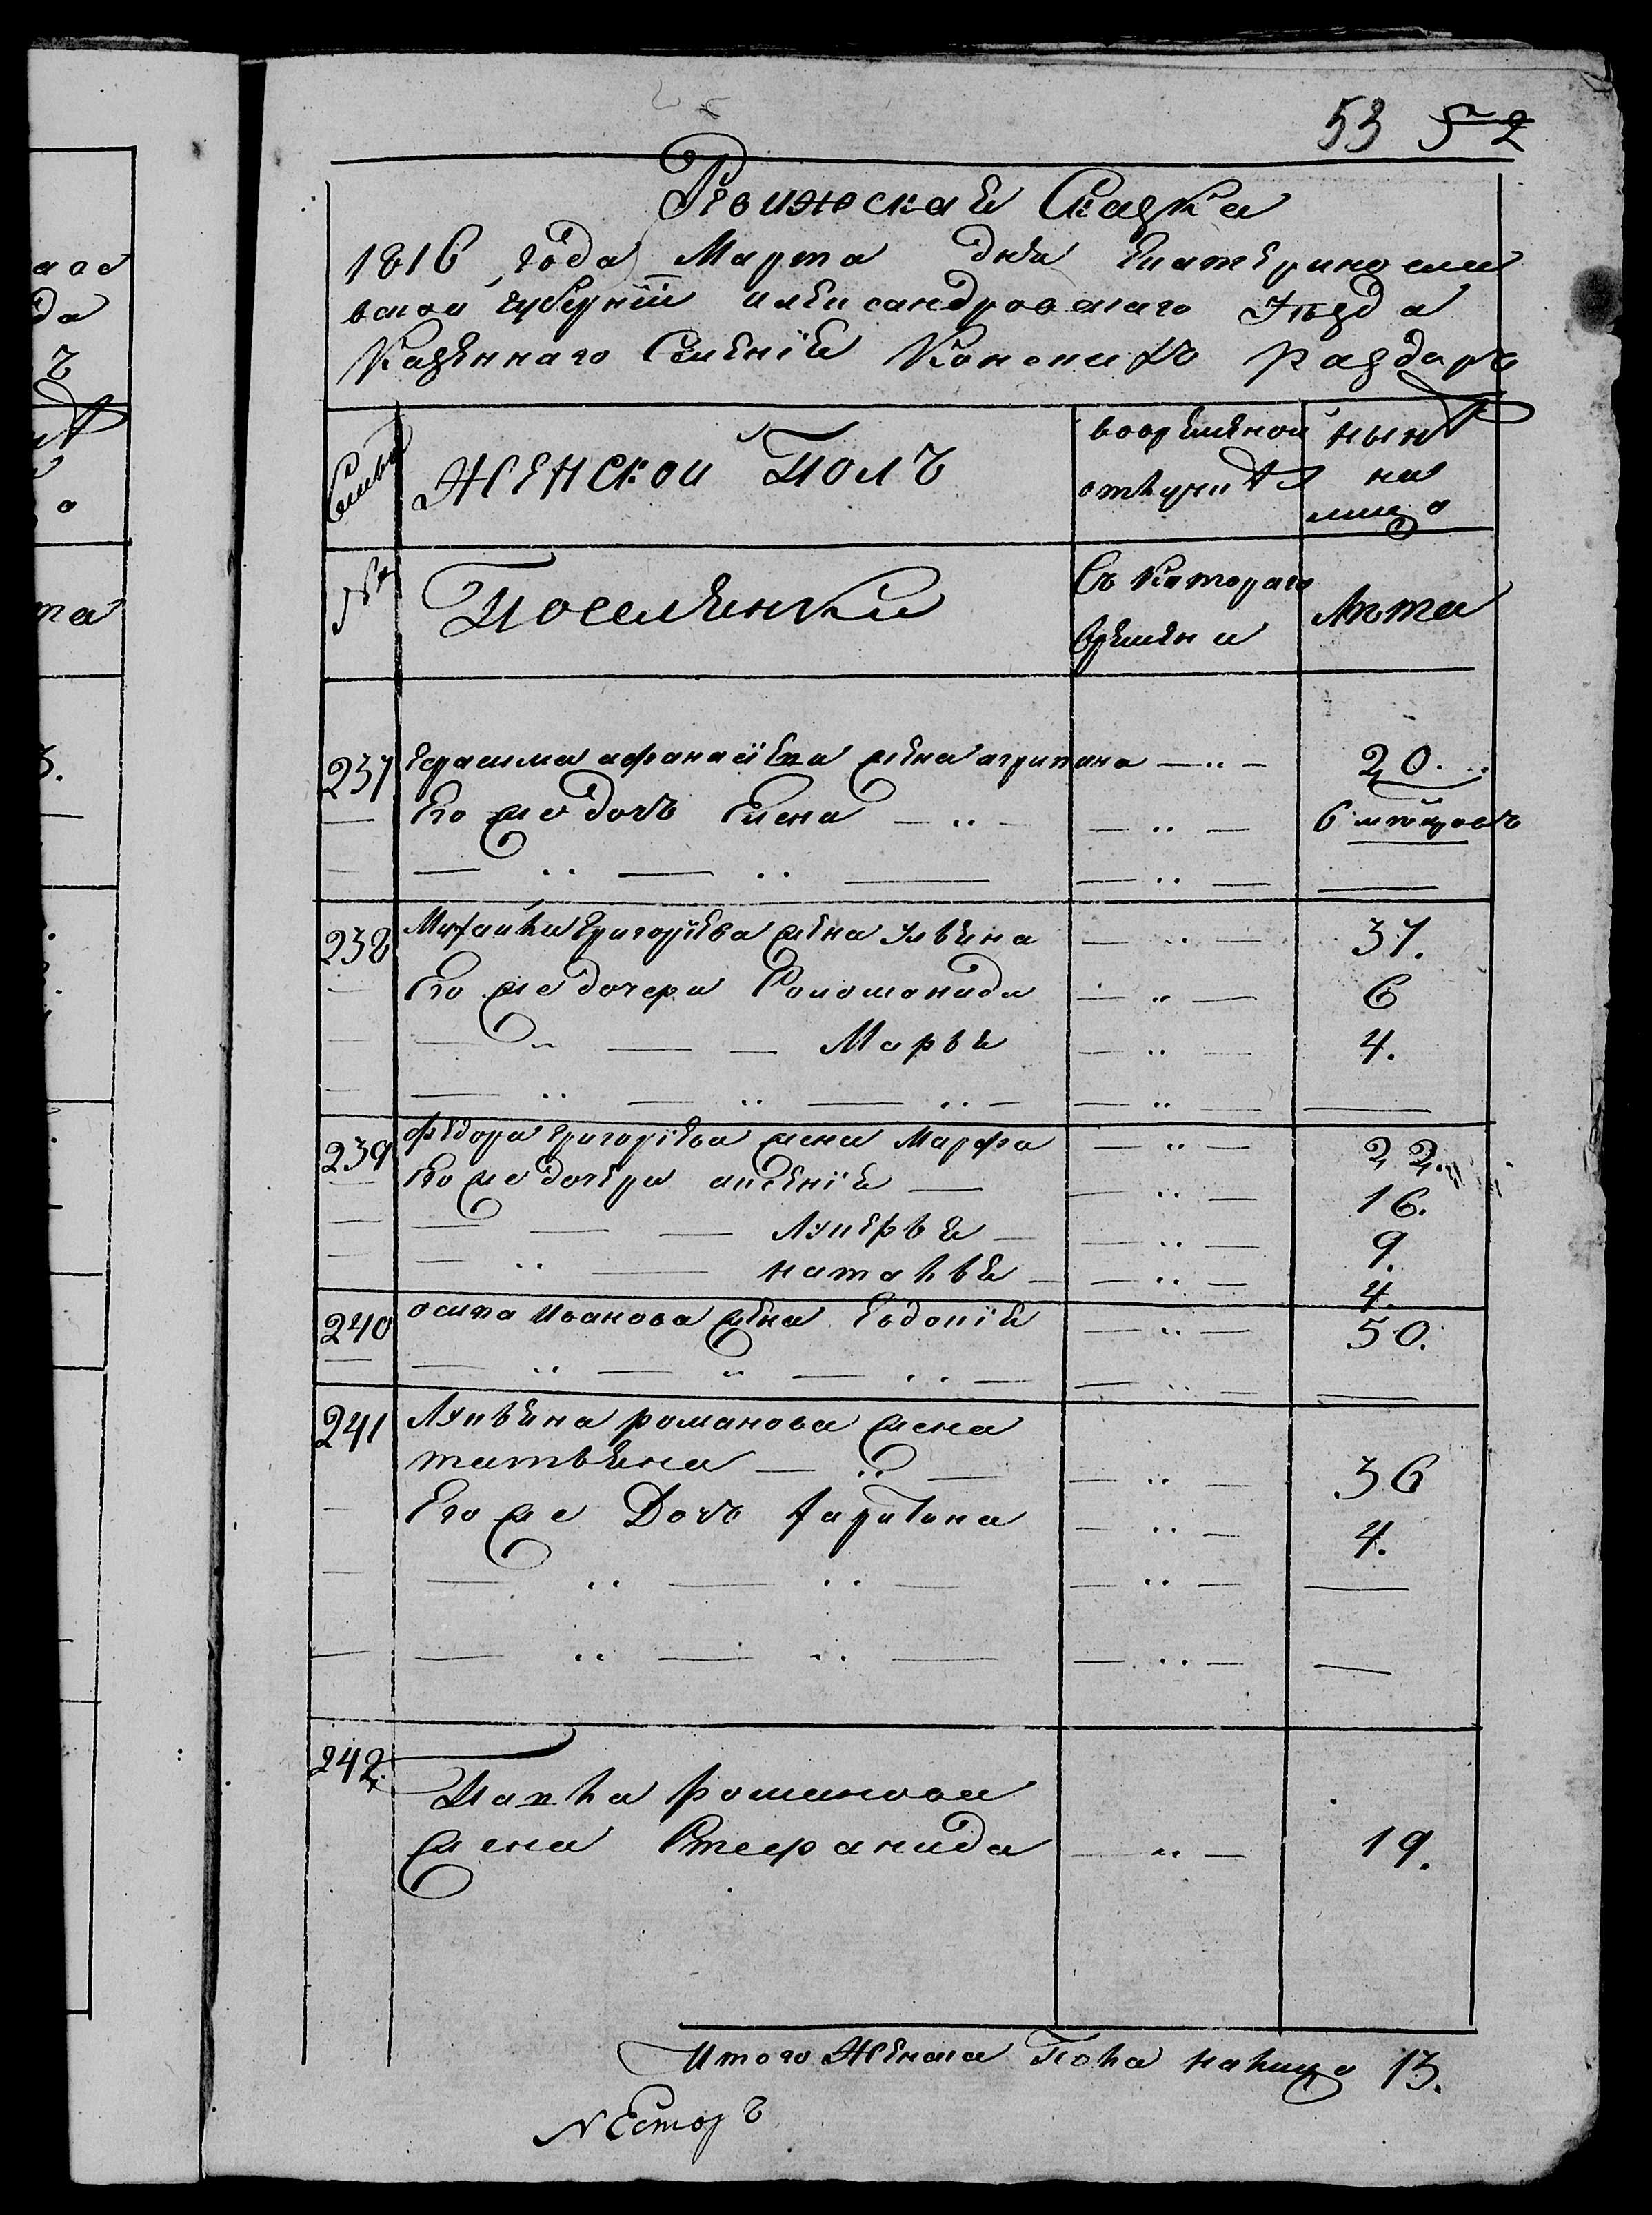 53 52
Ревижская Сказка
1816 года Марта дня Екатериносла
вской губернїи александровскаго уѣзда
Казеннаго Селенїя Конскихъ раздоръ
Семьи
Женской Полъ
вовременой
отлучкѣ
нынѣ
на
лицо
№
Поселянки
Съ котораго
времяни
Лѣта
237 Герасима афанасїева жена агрипина — „ — 20.
Его же дочь Елена — „ — — „ — 6 мѣсяцовъ
238 Михайла Григорїева жена Ульяна — „ — 37.
Его же дочери Соломонида — „ — 6
— „ — — Марья — „ — 4.
239 Федора григорїева жена Марфа — „ — 22.
Его же дочери аксенїя — — „ — 16.
— — — Лукерья — — „ — 9.
— „ — наталья — — „ — 4.
240 осипа Иванова жена Евдокїя — „ — 50.
241 Лукьяна романова жена
татьяна — „ — — „ — 36
Его же Дочь Харитина — „ — 4.
242. Павла романова
жена Стефанида — „ — 19.
Итого Женска Пола налицо 13.
Несторъ